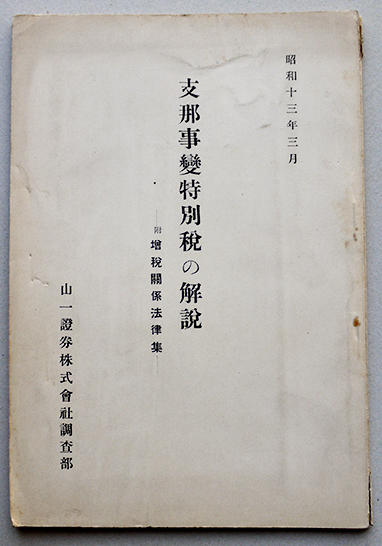 昭和十三年三月
支那事變特別稅の解說
附 增稅關係法律集
山一證券株式會社調査部